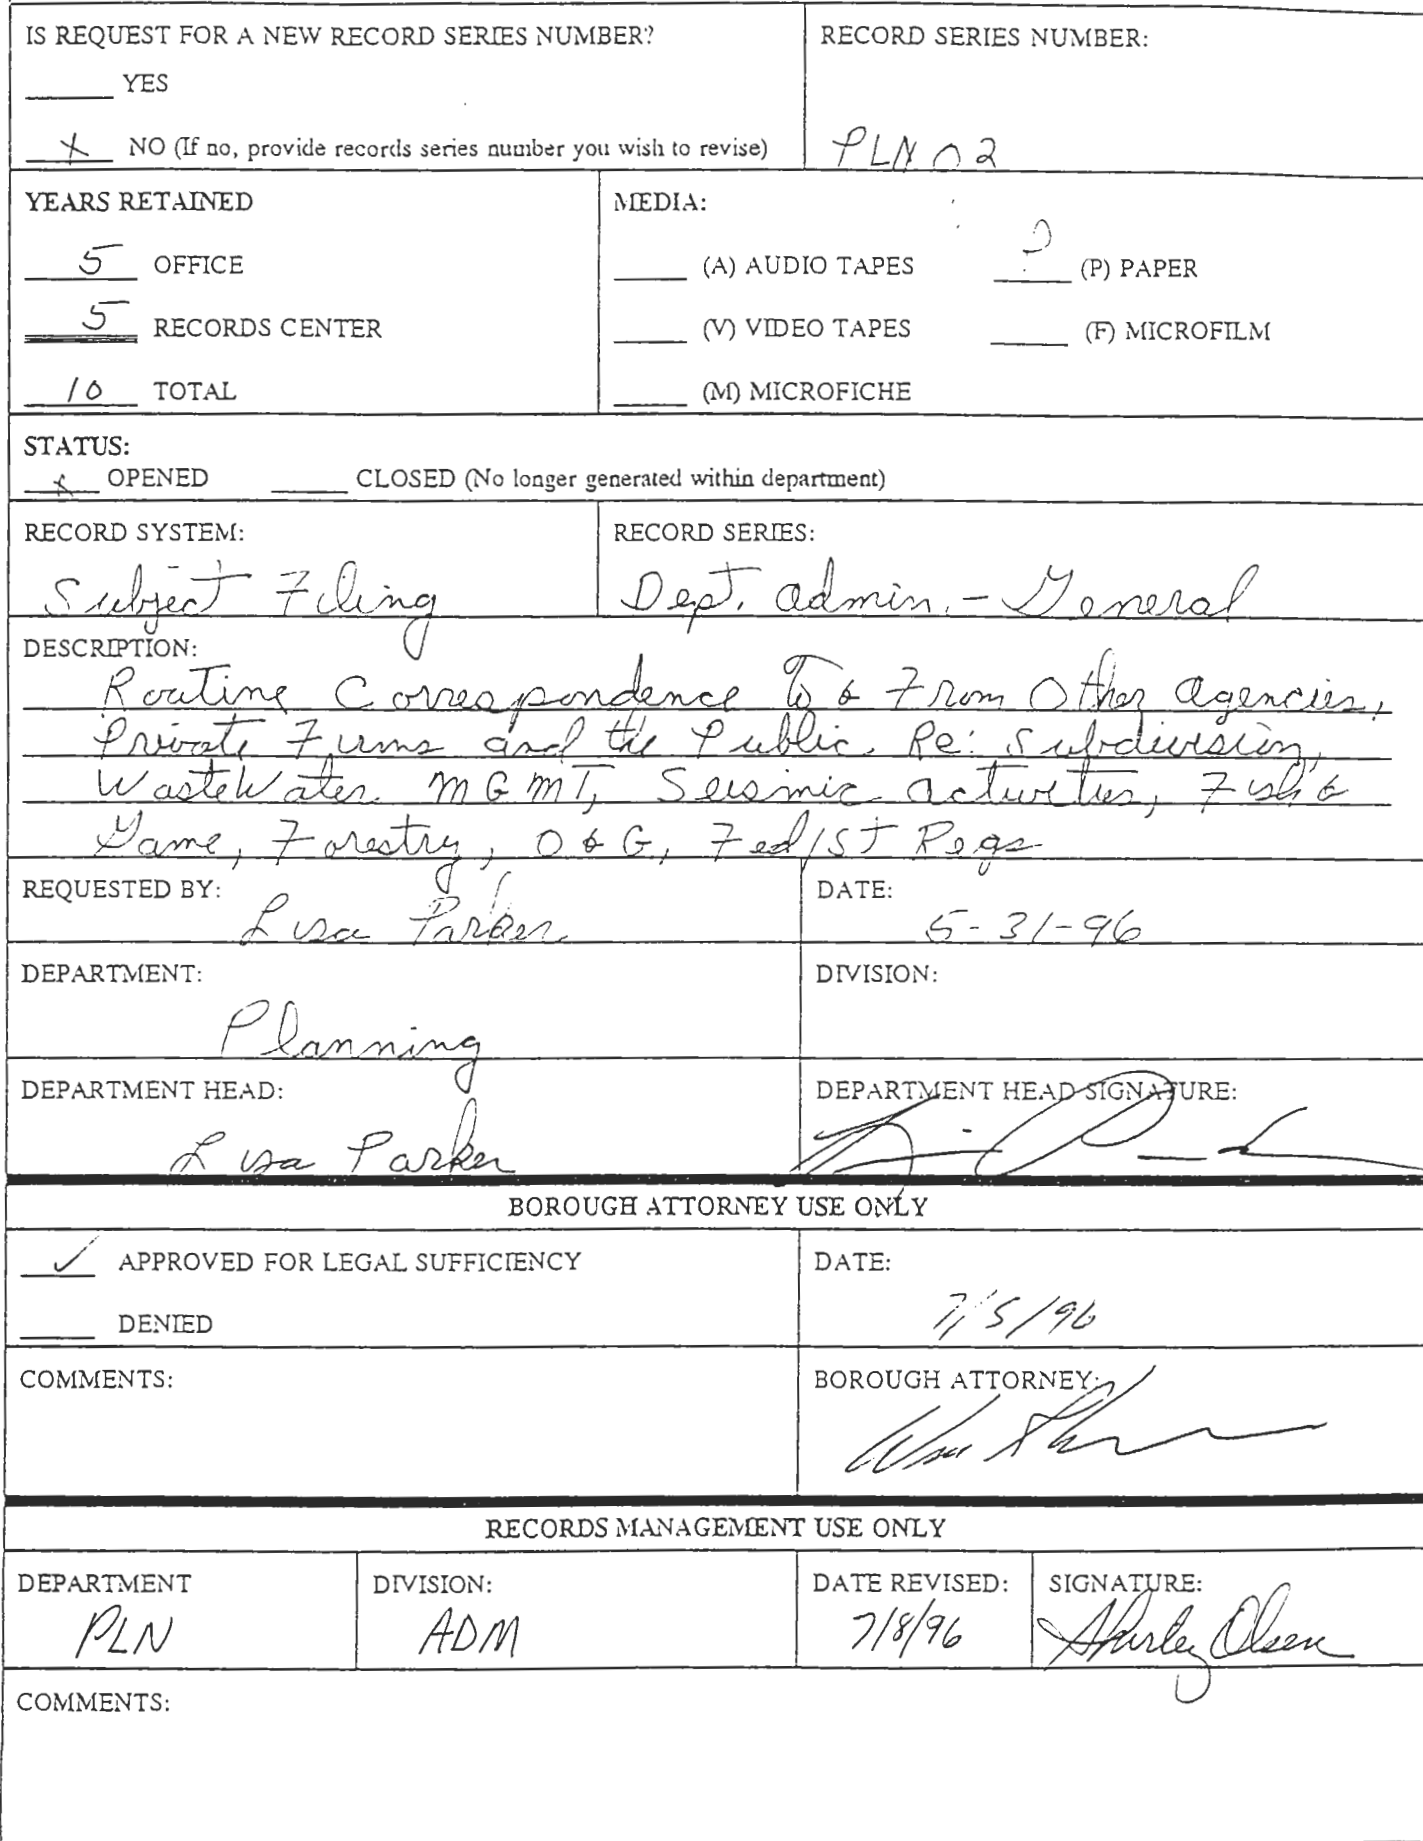 IS REQUEST FOR A NEW RECORD SERIES NUMBER?
RECORD SERIES NUMBER:
YES
x NO (If no, provide records series number you wish to revise)
PLN 02
YEARS RETAINED
MEDIA:
5 OFFICE
(A) AUDIO TAPES
(P) PAPER
5 RECORDS CENTER
(V) VIDEO TAPES
(F) MICROFILM
10 TOTAL
(M) MICROFICHE
STATUS:
x OPENED
CLOSED (No longer generated within department)
RECORD SYSTEM:
RECORD SERIES:
Subject Filing
Dept. Admin. - General
DESCRIPTION:
Routine Correspondence To & From Other Agencies,
Private Firms and the Public. Re: Subdivision,
WasteWater MGMT, Seismic Activities, Fish &
Game, Forestry, O & G, Fed/ST Regs
REQUESTED BY:
Lisa Parker
DATE:
5-31-96
DEPARTMENT:
Planning
DIVISION:
DEPARTMENT HEAD:
Lisa Parker
DEPARTMENT HEAD SIGNATURE:
BOROUGH ATTORNEY USE ONLY
✓ APPROVED FOR LEGAL SUFFICIENCY
DATE:
7/5/96
DENIED
COMMENTS:
BOROUGH ATTORNEY:
RECORDS MANAGEMENT USE ONLY
DEPARTMENT
PLN
DIVISION:
ADM
DATE REVISED:
7/8/96
SIGNATURE:
Shirley Olsen
COMMENTS: